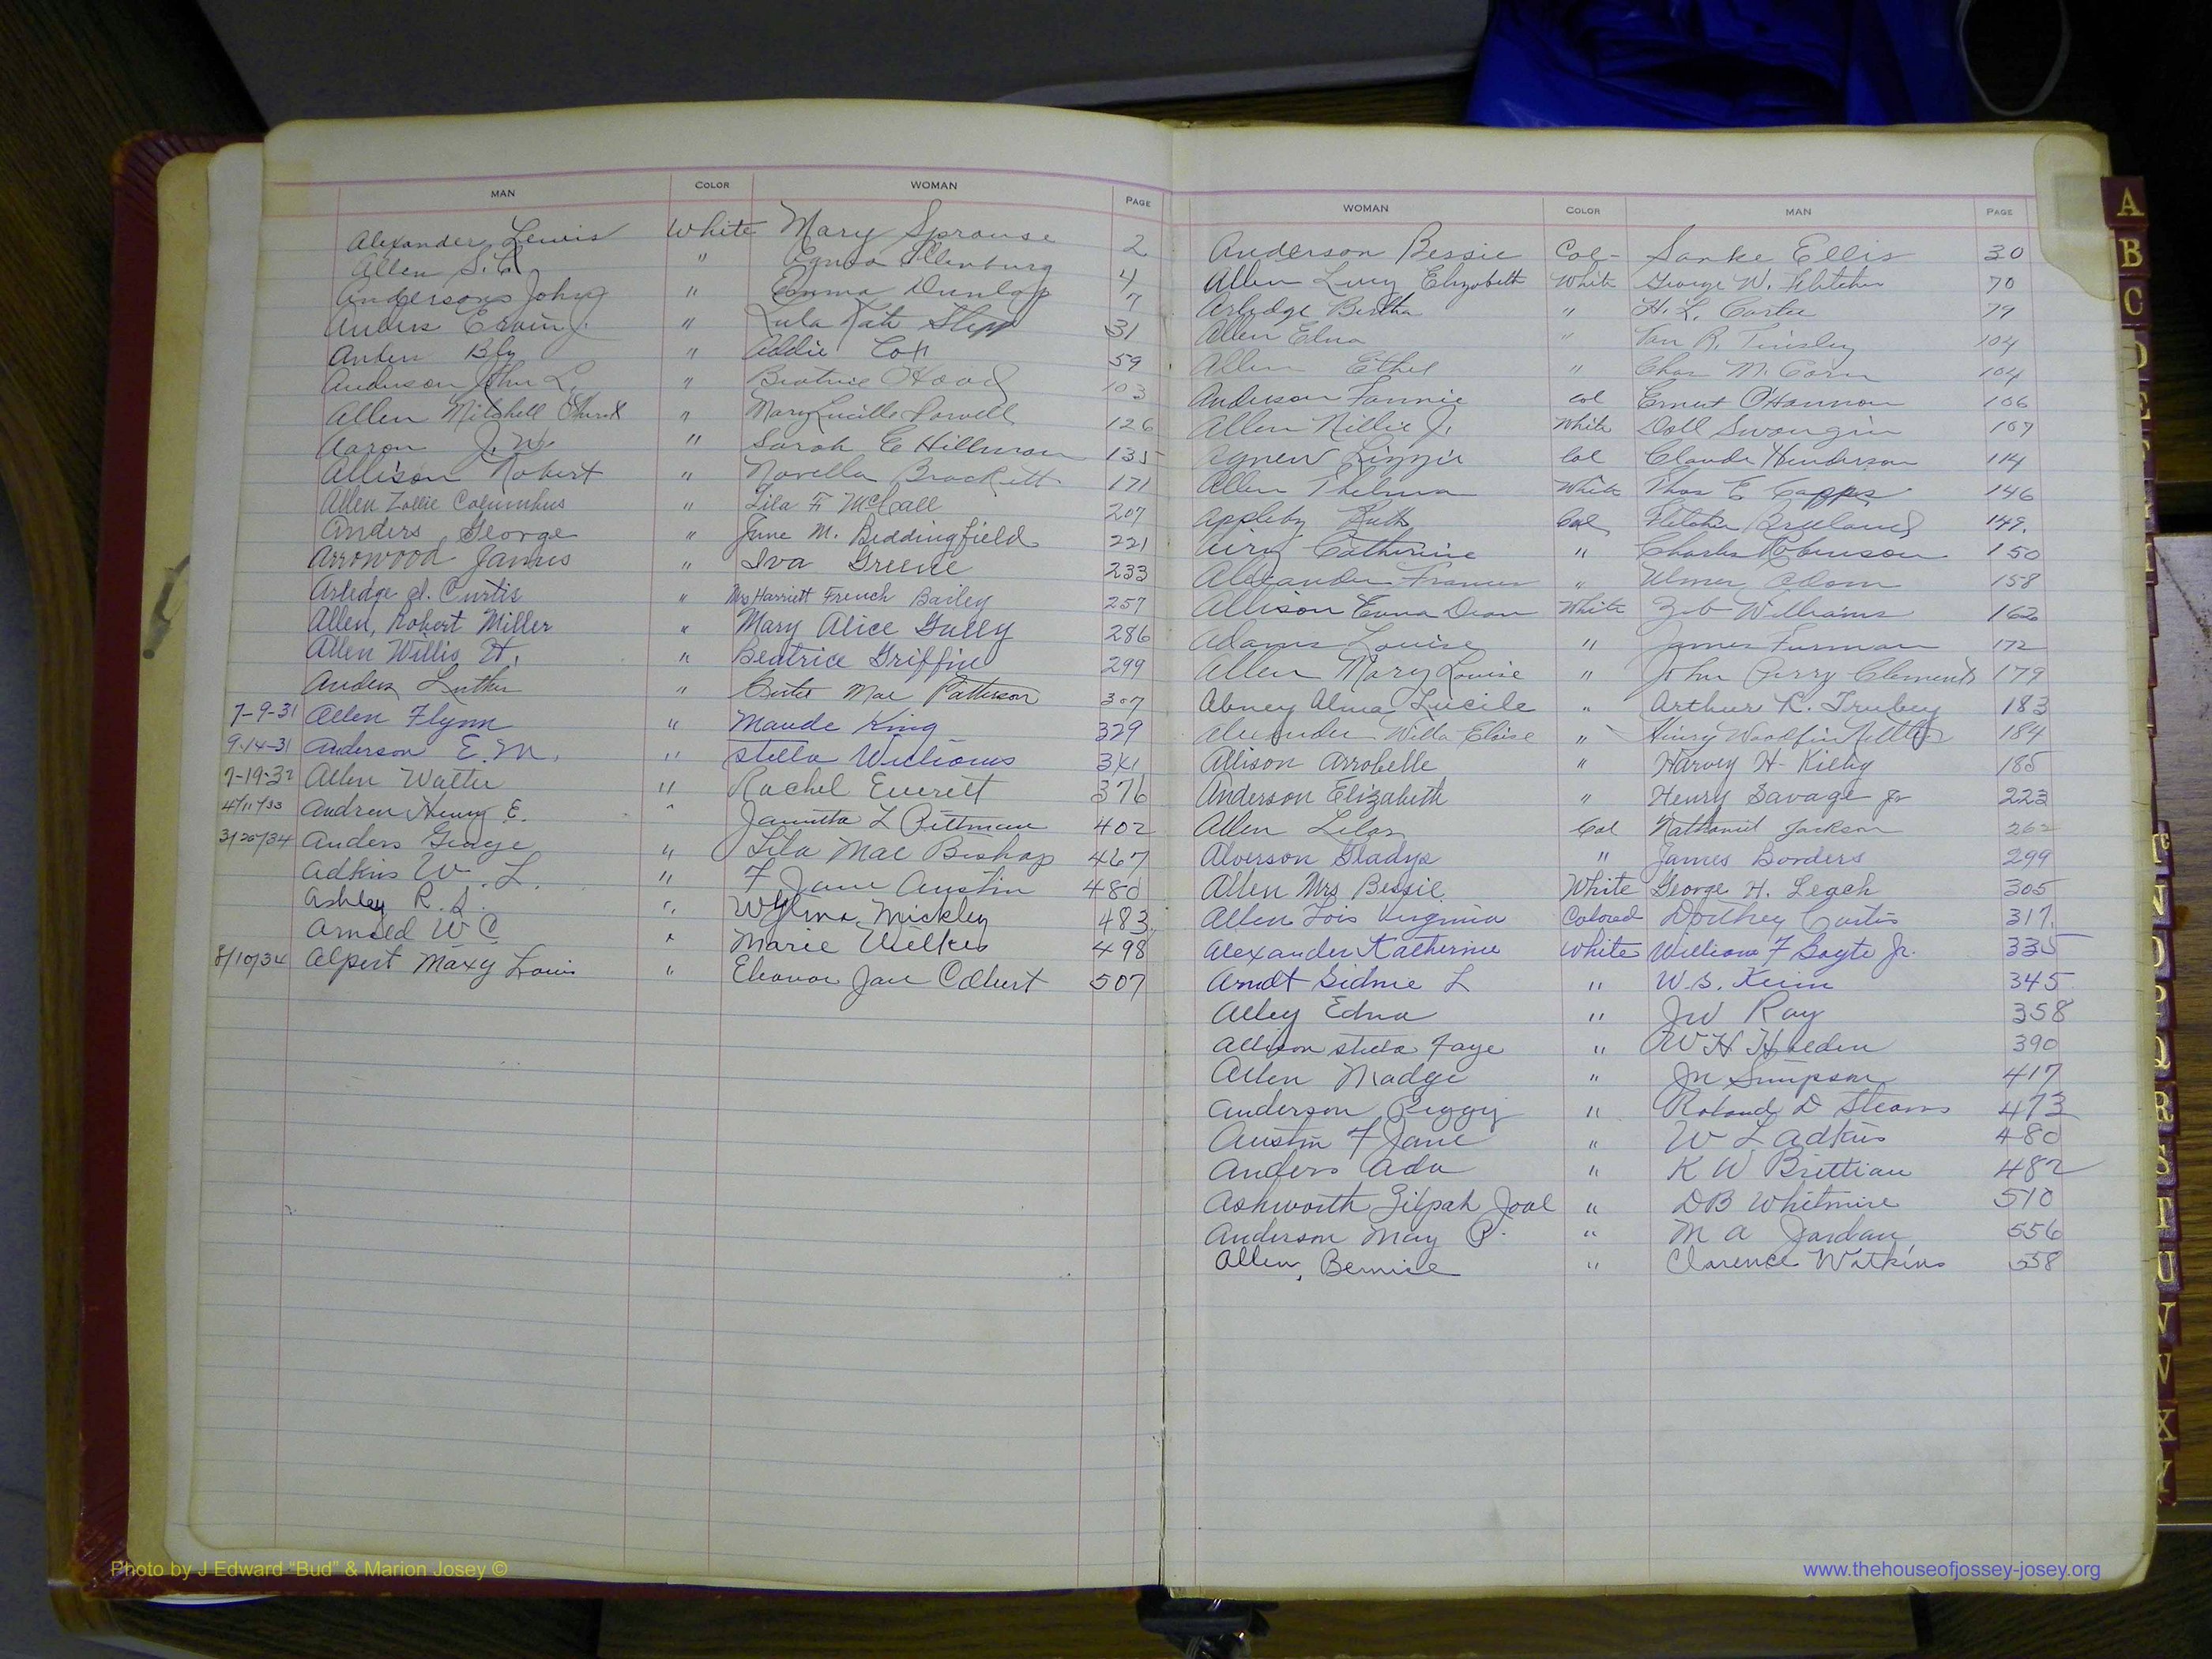 MAN COLOR WOMAN PAGE
Alexander, Lewis White Mary Sprouse 2
Allen S. " 4
Anderson John " Emma Dunlap 7
Anders Ervin J. " Lula Kate Stepp 31
Anders Bly " Addie Cox 59
Anderson John L. " Beatrice Hood 103
Allen Mitchell " Mary Lucille Powell 126
Aaron J. W. " Sarah E Hillman 135
Allison Robert " Novella Brackett 171
Allen Zollie Columbus " Lila F McCall 207
Anders George " June M. Beddingfield 221
Arrowood James " Iva Greene 233
Arledge J. Curtis " Mrs Harriett French Bailey 257
Allen, Robert Miller " Mary Alice Gully 286
Allen Willis H. " Beatrice Griffin 299
Anders Luther " Mae Patterson 307
7-9-31 Allen Flynn " Maude King 329
9-14-31 Anderson E. M. " Stella Williams 341
7-19-32 Allen Walter " Rachel Everett 376
4/11/33 Andrew Henry E. " Jaunita L Pittman 402
3/20/34 Anders George " Lila Mae Bishop 467
Adkins W. L. " F Jane Austin 480
Ashley R. S. " Wylma Mickley 483
Arnold W C " Marie Wilkes 498
8/10/34 Alpert Maxy Louis " Eleanor Jane Colbert 507
WOMAN COLOR MAN PAGE
Anderson Bessie Col- Sanke Ellis 30
Allen Lucy Elizabeth White George W. Fletcher 70
Arledge Bertha " H. L. Carter 79
Allen Elna " Van R. Tinsley 104
Allen Ethel " Chas M. Corn 104
Anderson Fannie Col Ernest O'Hannon 106
Allen Nillie J. White Doll Swongin 107
Agnew Lizzie Col Claude Henderson 114
Allen Thelma White Thos E Capps 146
Appleby Ruth Col Fletcher Breeland 149.
Airy Catherine " Charles Robinson 150
Alexander Frances " Ulmer Adam 158
Allison Edna Dean White Zeb Williams 162
Adams Louise " James Furman 172
Allen Mary Louise " John Perry Clements 179
Abney Alma Lucile " Arthur R. Trubey 183
Alexander Willa Eloise " Henry Woodfin 184
Allison Arrobelle " Harvey H- 185
Anderson Elizabeth " Henry Savage Jr 223
Allen Lilas Col Nathaniel Jackson 262
Alverson Gladys " James Borders 299
Allen Mrs Bessie White George H. Leach 305
Allen Lois Virginia Colored Dorthey Curtis 317.
Alexander Katherine White William F Bayte Jr. 335
Arndt Sidnie L " W. S. Keim 345
Alley Edna " J W Ray 358
Allison Stella Faye " W H Holden 390
Allen Madge " Jn Simpson 417
Anderson Peggy " Roland D Stearns 473
Austin F Jane " W L Adkins 480
Anders Ada " K W Brittian 482
Ashworth Zilpah Joal " D B Whitmire 510
Anderson May P. " M A Jordan 556
Allen, Bernice " Clarence Watkins 558
A
B
C
D
E
N
O
P
Q
R
S
T
U
V
W
X
Y
Photo by J Edward "Bud" & Marion Josey ©
www.thehouseofjossey-josey.org